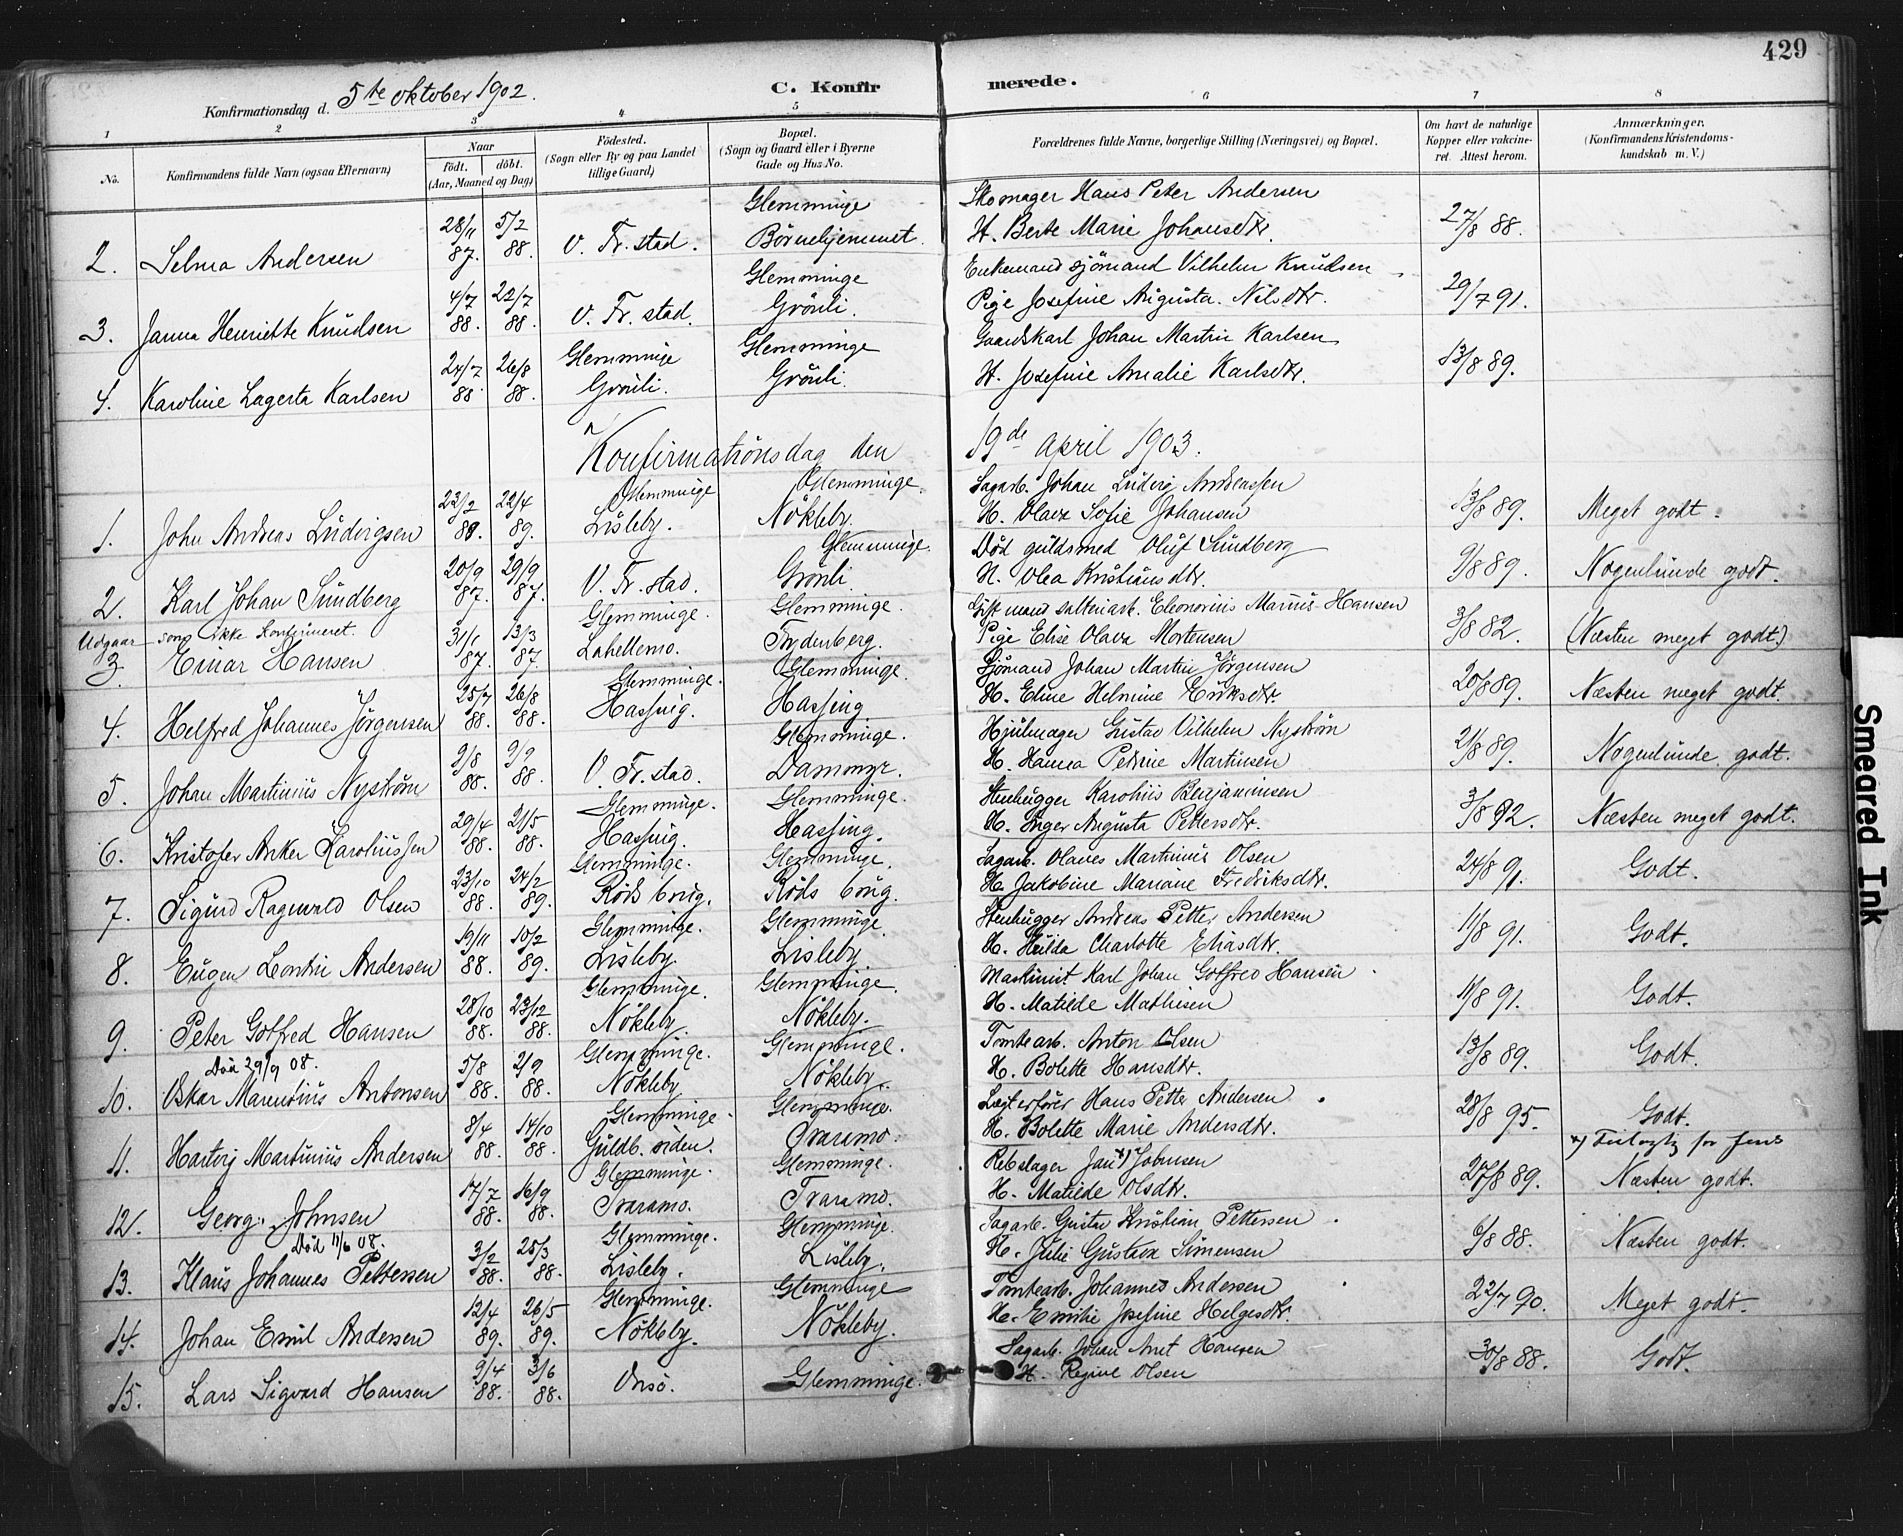 429
Konfirmationsdag d. 5te oktober 1902. C. Konfirmerede.
1 2 3 4 5 6 7 8
No. Konfirmandens fulde Navn (ogsaa Efternavn) Naar født. døbt. (Aar, Maaned og Dag) Fødested. (Sogn eller By og paa Landet tillige Gaard) Bopæl. (Sogn og Gaard eller i Byerne Gade og Hus No. Forældrenes fulde Navne, borgerlige Stilling (Næringsvei) og Bopæl. Om havt de naturlige Kopper eller vakcineret. Attest herom. Anmærkninger. (Konfirmandens Kristendomskundskab m. V.)
Glemminge Skomager Hans Peter Andersen
2. Selma Andersen 28/11 87. 5/2 88. V. Fr. stad. Børnehjemmet. H. Berte Marie Johansdtr. 27/8 88.
Glemminge Enkemand sjömand Vilhelm Knudsen
3. Janna Henriette Knudsen 4/7 88. 22/7 88. V. Fr. stad. Grönli. Pige Josefine Augusta Nilsdtr. 29/7 91.
Glemminge Glemminge Gaardskarl Johan Martin Karlsen
4. Karoline Lagerta Karlsen 24/7 88 26/8 88. Grönli. Grönli. H. Josefine Amalie Karlsdtr. 13/8 89.
Konfirmationsdag den 19de april 1903.
Glemminge Glemminge. Sagarb. Johan Ludvig Andreassen
1. John Andreas Ludvigsen 23/2 89. 22/4 89. Lisleby. Nökleby. H. Olava Sofie Johansen 13/8 89. Meget godt.
Glemminge. Död guldsmed Oluf Sundberg
2. Karl Johan Sundberg 20/9 87. 29/9 87. V. Fr. stad. Grönli H. Olea Kristiansdtr. 9/8 89. Nogenlunde godt.
Udgaar som ikke konfirmeret. Glemminge. Glemminge. Gift mand salteriarb. Eleonorius Marius Hansen
3. Einar Hansen 31/1 87. 13/3 87. Lahellemo. Trydenberg. Pige Elise Olava Mortensen 3/8 82. (Næsten meget godt.)
Glemminge. Glemminge. Sjömand Johan Martin Jörgensen
4. Helfred Johannes Jörgensen 25/7 88. 26/8 88. Hassing. Hassing H. Eline Helmine Eriksdtr. 20/8 89. Næsten meget godt.
Glemminge. Hjulmager Gustav Vilhelm Nyström
5. Johan Martinius Nyström 2/8 88. 9/9 88. V. Fr. stad. Dammyr. H. Hanna Petrine Martinsen 21/8 89. Nogenlunde godt.
Glemminge. Glemminge. Stenhugger Karolius Benjaminsen
6. Kristofer Anker Karoliussen 29/4 88. 21/5 88. Hassing. Hassing. H. Inger Augusta Pettersdtr. 3/8 92. Næsten meget godt.
Glemminge. Glemminge. Sagarb. Olaves Martinius Olsen
7. Sigurd Ragnvald Olsen 23/10 88. 24/2 89. Röds brug. Röds brug. H. Jakobine Mariane Fredriksdtr. 24/8 91. Godt.
Glemminge. Glemminge. Stenhugger Andreas Petter Andersen
8. Eugen Leontin Andersen 19/11 88. 10/2 89. Lisleby. Lisleby H. Hulda Charlotte Eliasdtr. 11/8 91. Godt.
Glemminge. Glemminge. Maskinist Karl Johan Golfred Hansen
9. Peter Golfred Hansen 28/10 88. 23/12 88. Nökleby. Nökleby. H. Matilde Mathisen 11/8 91. Godt.
Död 29/9 08. Glemminge. Glemminge. Tomtearb. Anton Olsen
10. Oskar Marentius Antonsen 5/8 88. 2/9 88. Nökleby Nökleby. H. Bolette Hansdtr. 13/8 89. Godt.
Glemminge Glemminge. Lægterförer Hans Petter Andersen
11. Hartvig Martinius Andersen 8/4 88. 14/10 88. Guldb. siden. Traramo. H. Bolette Marie Andersdtr. 28/8 95. Godt.
Glemminge. Glemminge. Rebslager Jan x) Johnsen x) Feilagtig for Jens
12. Georg Johnsen 17/7 88. 16/9 88. Traramo. Traramo. H. Matilde Olsdtr. 27/8 89. Næsten godt.
Död 11/6 08. Glemminge. Glemminge. Sagarb. Gustav Kristian Pettersen
13. Klaus Johannes Pettersen 3/2 88. 25/3 88. Lisleby. Lisleby. H. Julie Gustava Simensen 6/8 88. Næsten godt.
Glemminge. Glemminge Tomtearb. Johannes Andersen
14. Johan Emil Andersen 12/4 89. 26/5 89. Nökleby. Nökleby. H. Emilie Josefine Helgesdtr. 22/7 90. Meget godt.
Sagarb. Johan Anet Hansen
15. Lars Sigvard Hansen 9/4 88. 3/6 88. Onsö. Glemminge. H. Regine Olsen 30/8 88. Godt.
Smeared Ink